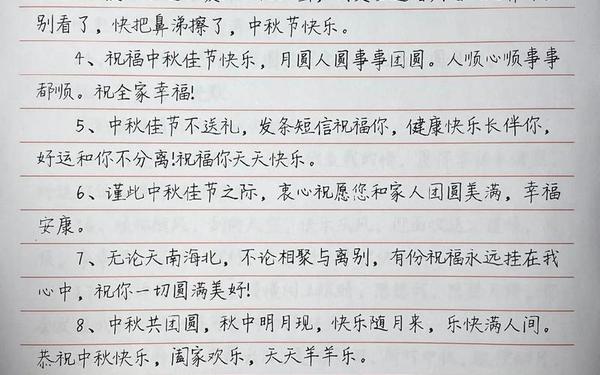 别看了，快把鼻涕擦了，中秋节快乐。
4、祝福中秋佳节快乐，月圆人圆事事团圆。人顺心顺事事
都顺。祝全家幸福!
5、中秋佳节不送礼，发条短信祝福你，健康快乐长伴你，
好运和你不分离!祝福你天天快乐。
6、谨此中秋佳节之际，衷心祝愿您和家人团圆美满，幸福
安康。
7、无论天南海北，不论相聚与离别，有份祝福永远挂在我
心中，祝你一切圆满美好!
8、中秋共团圆，秋中明月现，快乐随月来，乐快满人间。
恭祝中秋快乐，阖家欢乐，天天羊羊乐。